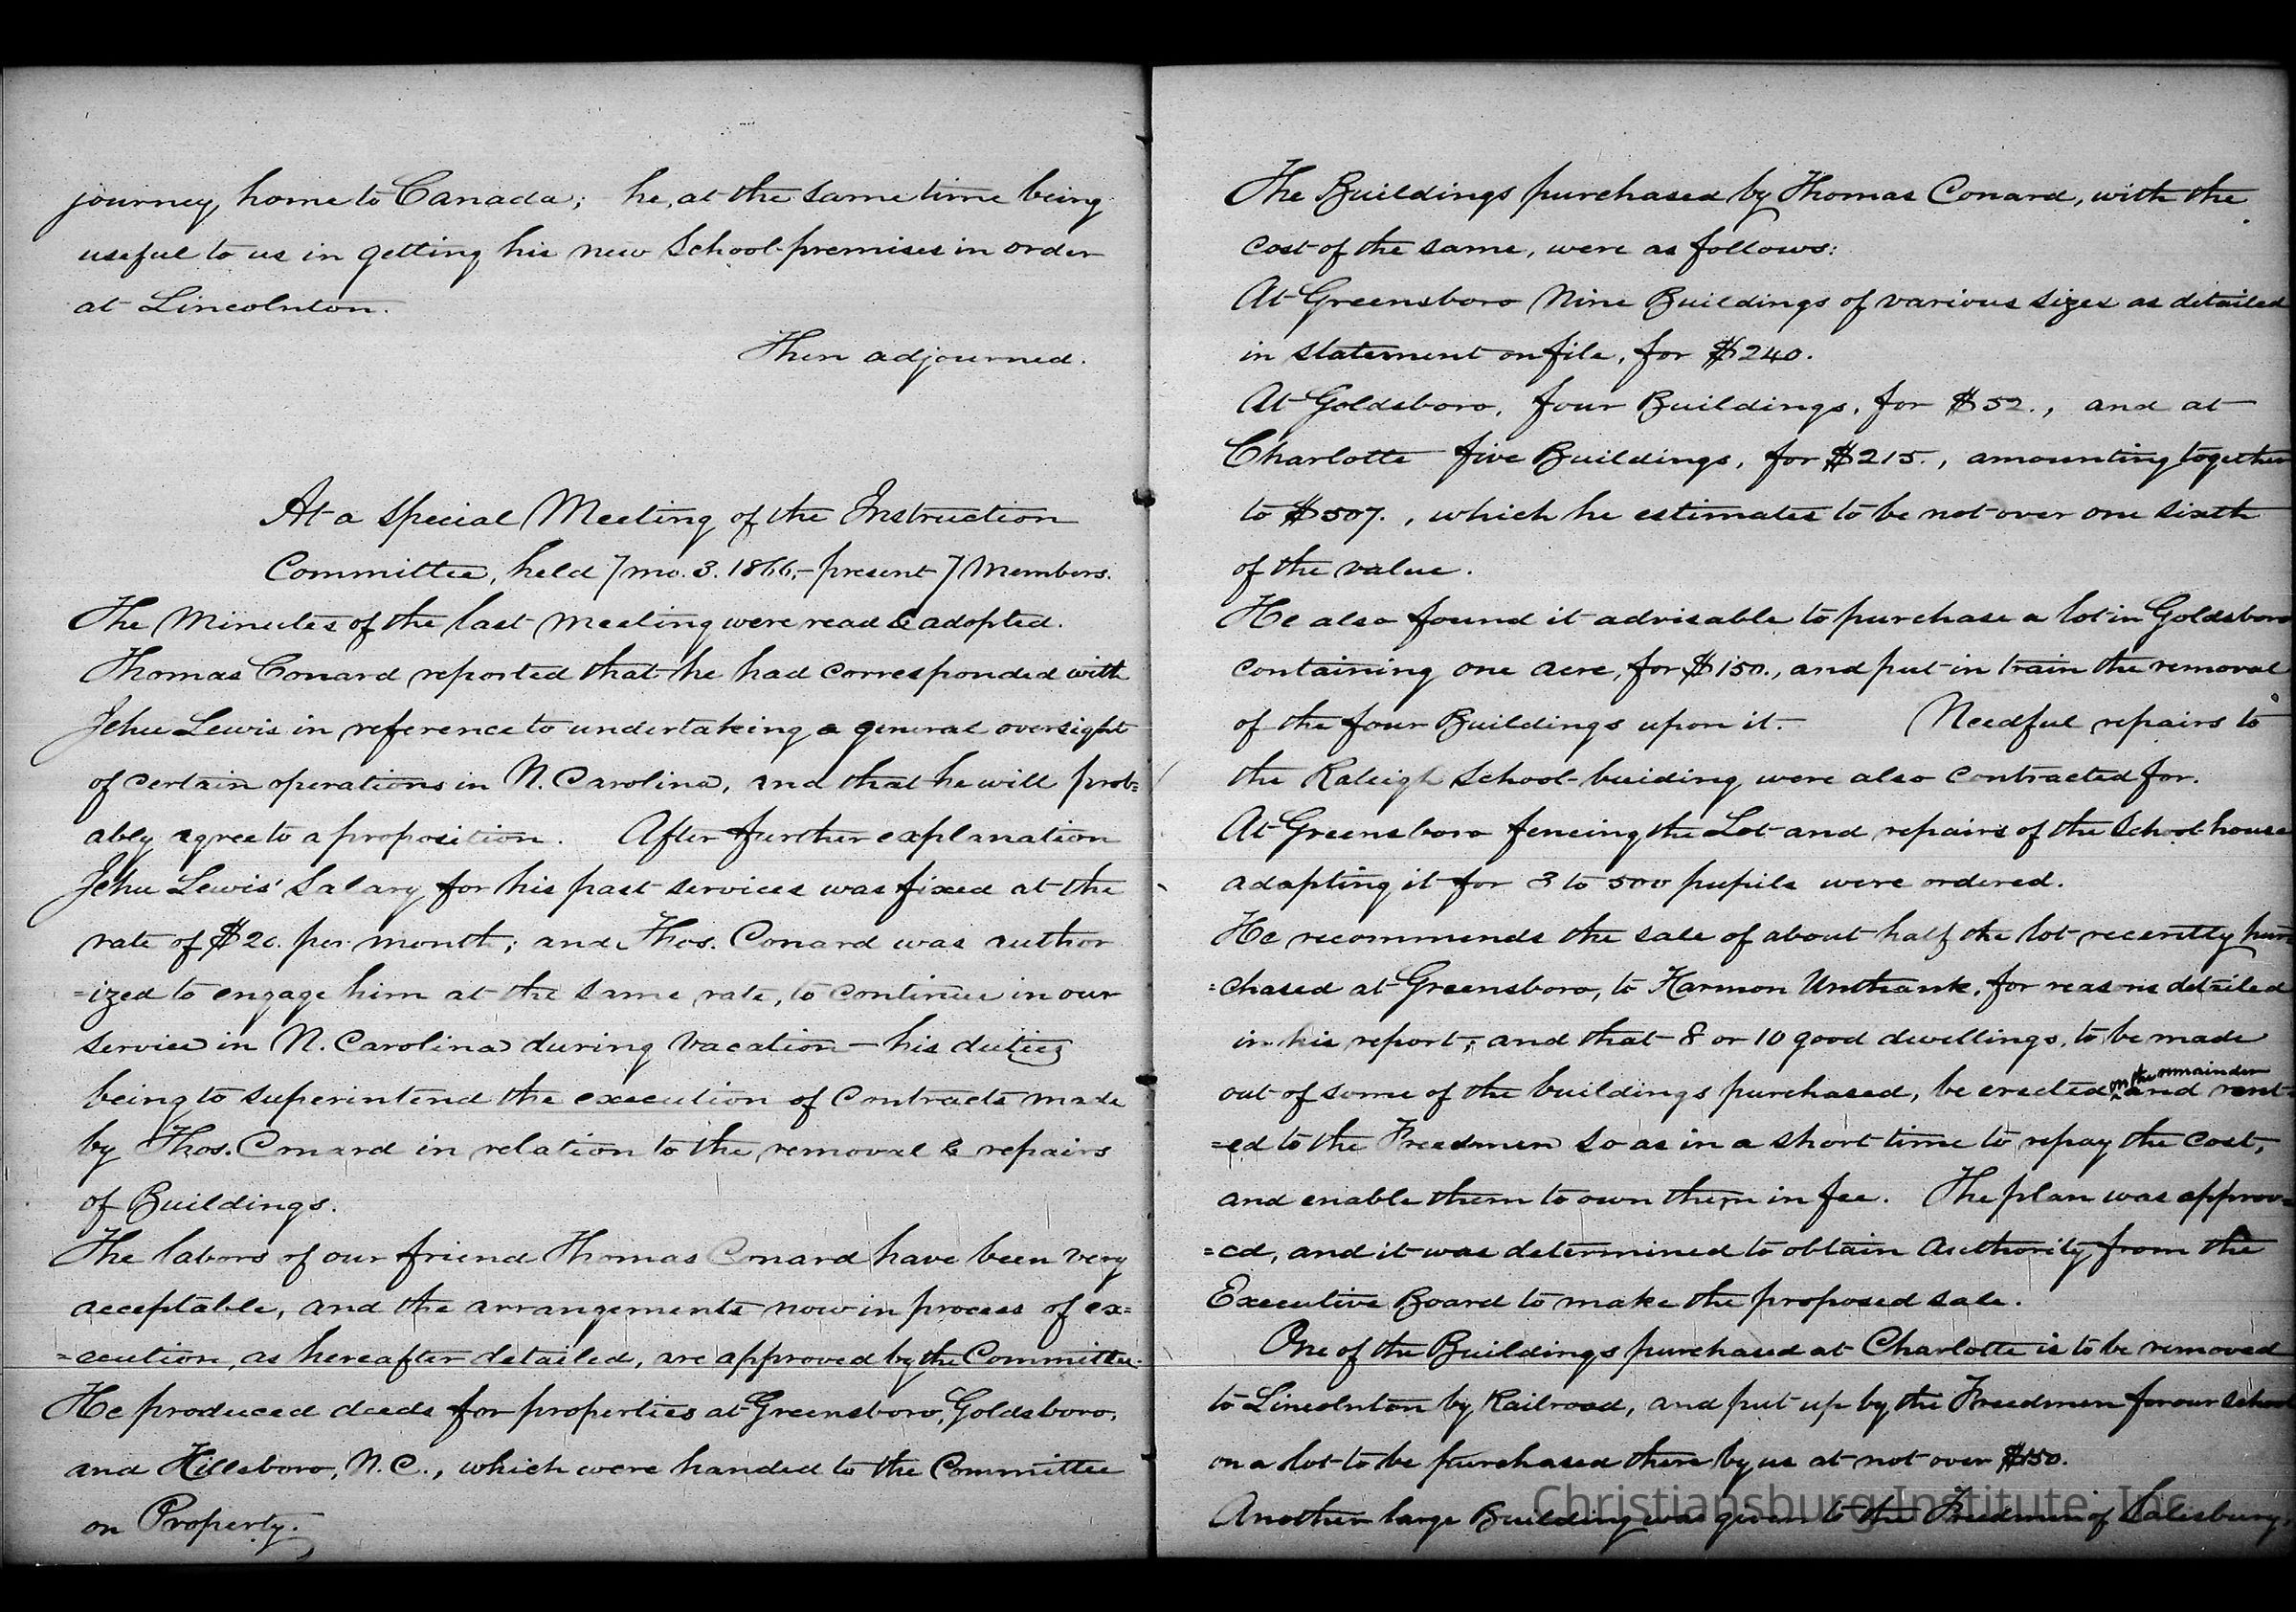 journey home to Canada; he, at the same time being
useful to us in getting his new School-premises in order
at Lincolnton.
Then adjourned.
At a special Meeting of the Instruction
Committee, held 7 mo. 3. 1866,- present 7 Members.
The Minutes of the last Meeting were read & adopted.
Thomas Conard reported that he had corresponded with
Jehu Lewis in reference to undertaking a general oversight
of certain operations in N. Carolina, and that he will prob=
ably agree to a proposition. After further explanation
Jehu Lewis' Salary for his past services was fixed at the
rate of $20. per month; and Thos. Conard was author
=ized to engage him at the same rate, to continue in our
service in N. Carolina during vacation - his duties
being to superintend the execution of Contracts made
by Thos. Conard in relation to the removal & repairs
of Buildings.
The labors of our friend Thomas Conard have been very
acceptable, and the arrangements now in process of ex=
=ecution, as hereafter detailed, are approved by the Committee.
He produced deeds for properties at Greensboro, Goldsboro,
and Hillsboro, N.C., which were handed to the Committee
on Property.
The Buildings purchased by Thomas Conard, with the
cost of the same, were as follows:
At Greensboro Nine Buildings of various sizes as detailed
in statement on file, for $240.
At Goldsboro, four Buildings, for $52., and at
Charlotte five Buildings, for $215., amounting together
to $507., which he estimates to be not over one sixth
of the value.
He also found it advisable to purchase a lot in Goldsboro
containing one acre, for $150., and put in train the removal
of the four Buildings upon it. Needful repairs to
the Raleigh School-buiding were also contracted for.
At Greensboro fencing the Lot and repairs of the School house
adapting it for 3 to 500 pupils were ordered.
He recommends the sale of about half the lot recently pur=
=chased at Greensboro, to Harmon Unthank, for reasons detailed
in his report; and that 8 or 10 good dwellings, to be made
out of some of the buildings purchased, be erected on the remainder and rent=
=ed to the Freedmen so as in a short time to repay the cost,
and enable them to own them in fee. The plan was approv=
=ed, and it was determined to obtain authority from the
Executive Board to make the proposed sale.
One of the Buildings purchased at Charlotte is to be removed
to Lincolnton by Railroad, and put up by the Freedmen for our school
on a lot to be purchased there by us at not over $150.
Another large Building was given to the Freedmen of Salisbury,
Christiansburg Institute, Inc.